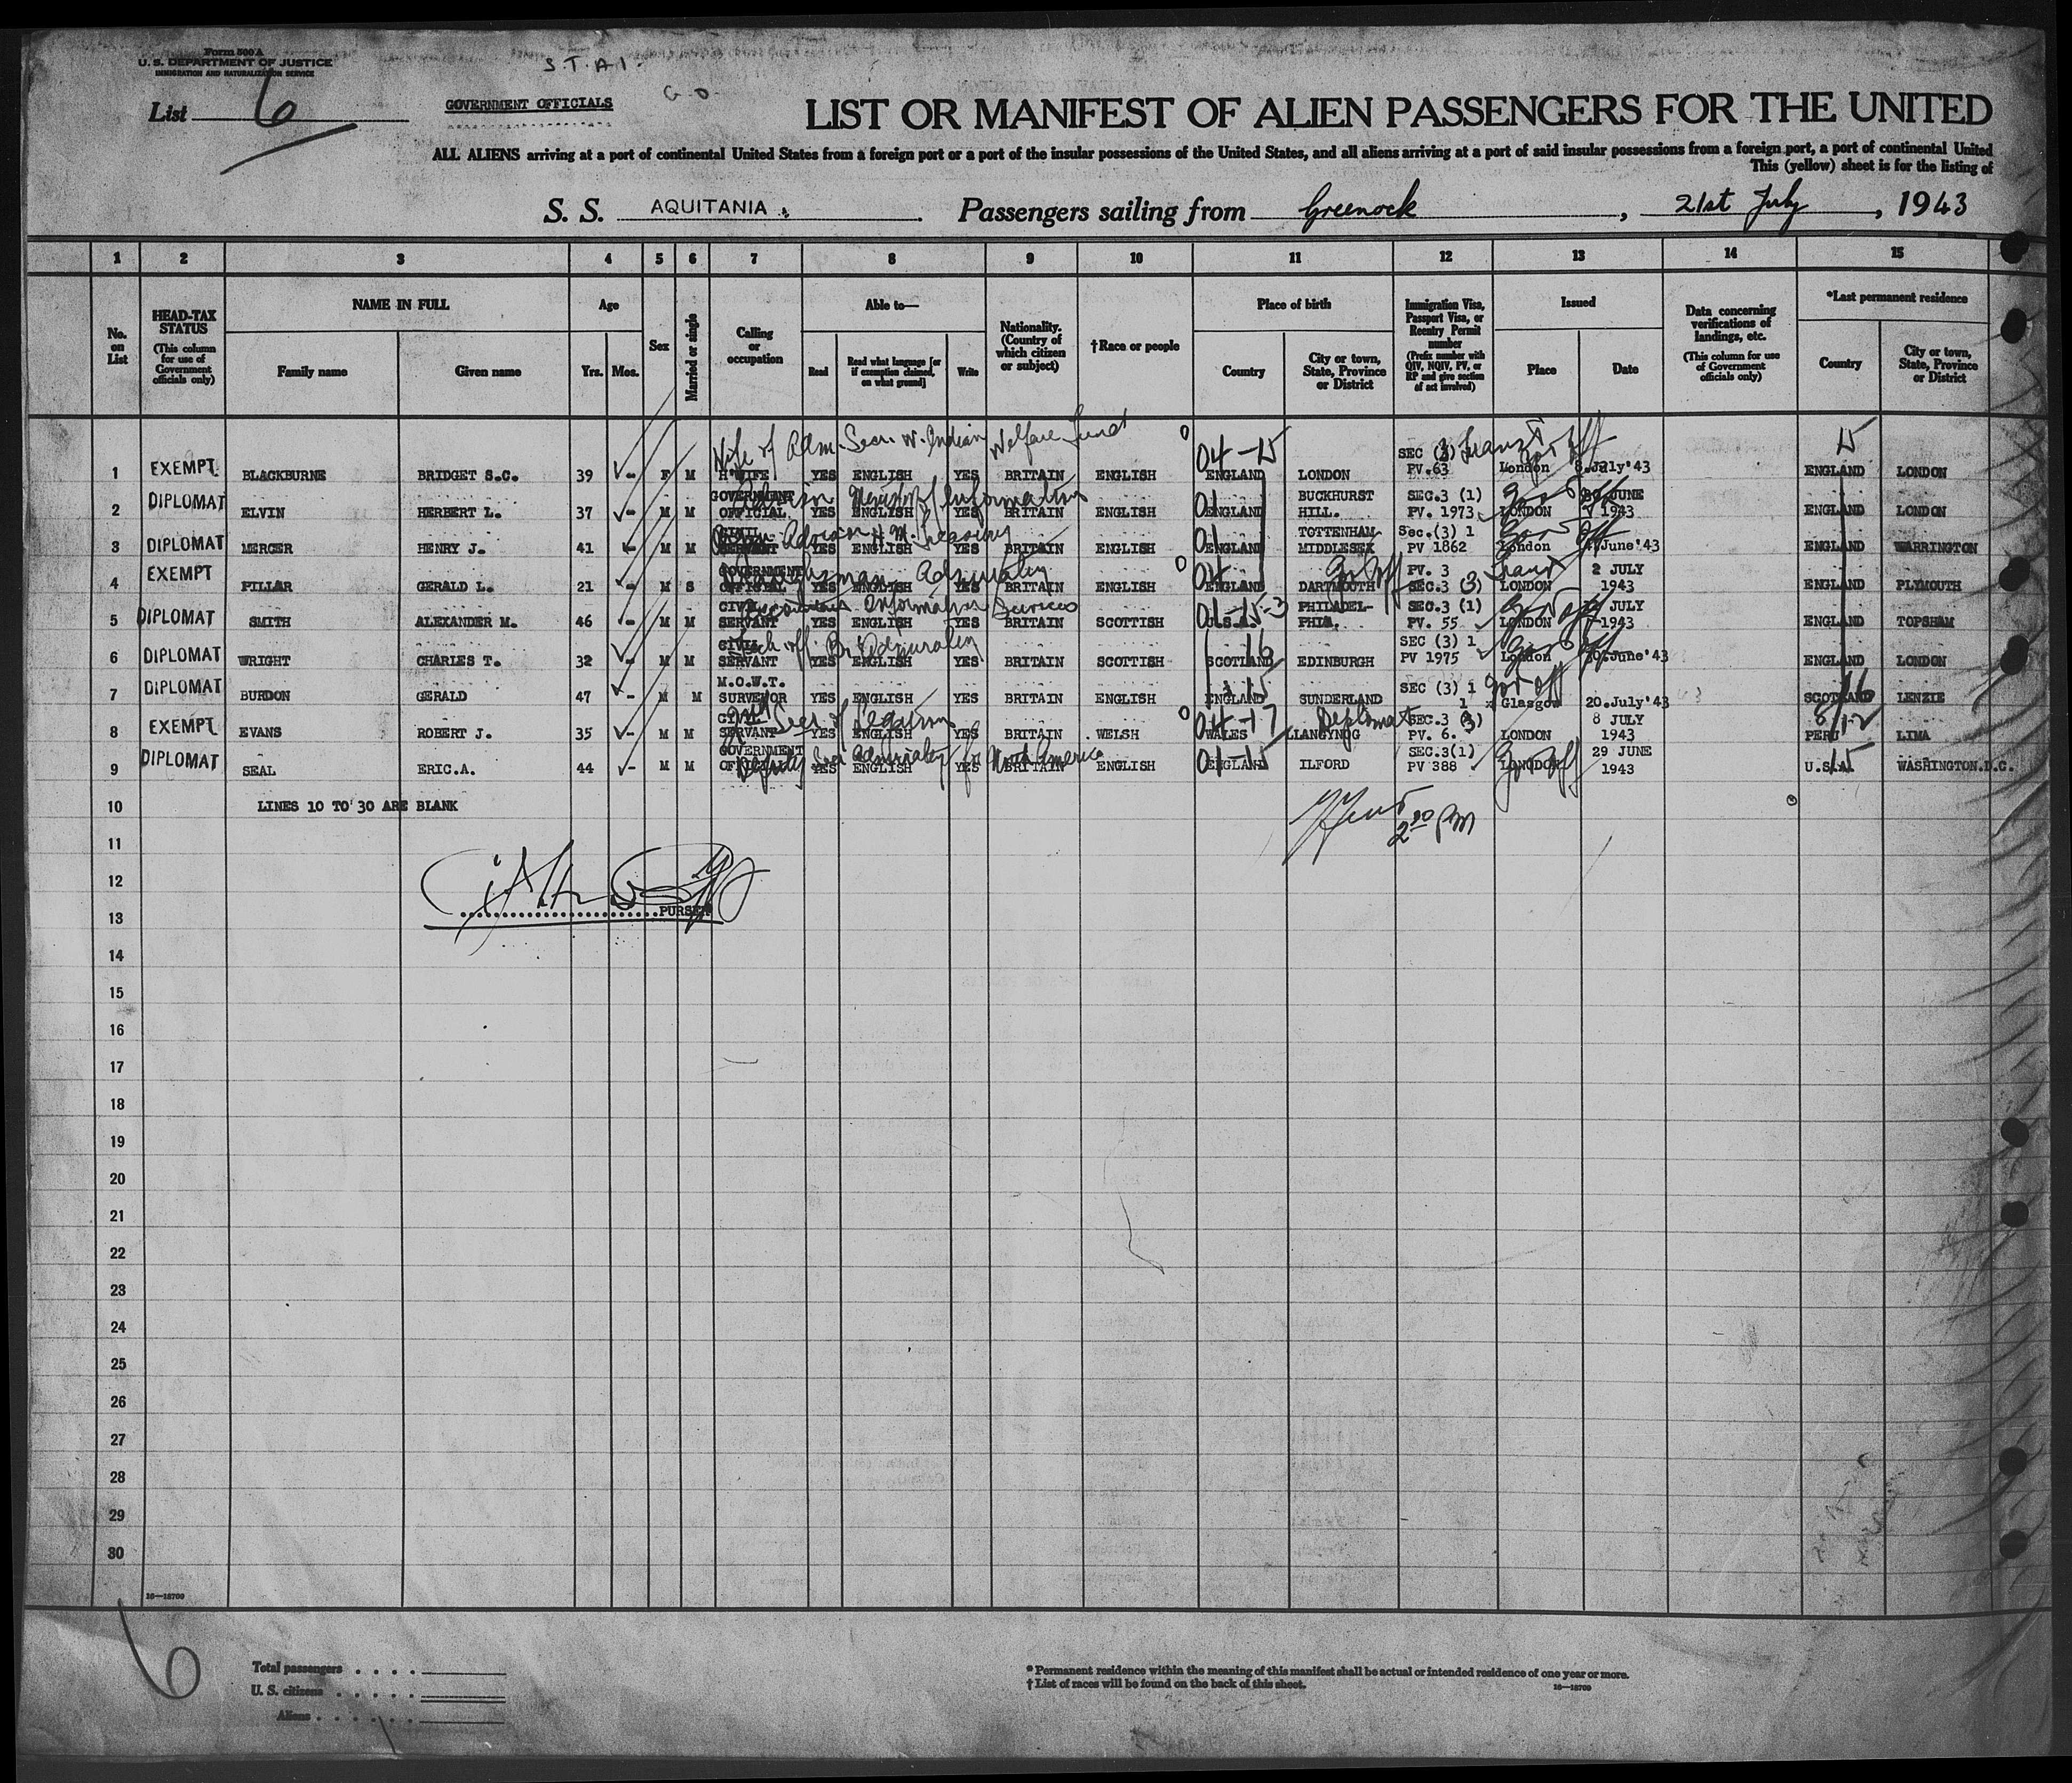 Form 500 A
U. S. DEPARTMENT OF JUSTICE
IMMIGRATION AND NATURALIZATION SERVICE
S.T.A1.
G.O.
List 6
GOVERNMENT OFFICIALS
LIST OR MANIFEST OF ALIEN PASSENGERS FOR THE UNITED
ALL ALIENS arriving at a port of continental United States from a foreign port or a port of the insular possessions of the United States, and all aliens arriving at a port of said insular possessions from a foreign port, a port of continental United
This (yellow) sheet is for the listing of
S. S. AQUITANIA Passengers sailing from Greenock, 21st July, 1943
1 2 3 4 5 6 7 8 9 10 11 12 13 14 15
No. on List
HEAD-TAX STATUS (This column for use of Government officials only)
NAME IN FULL
Family name Given name
Age
Yrs. Mos.
Sex
Married or single
Calling or occupation
Able to—
Read Read what language [or if exemption claimed, on what ground] Write
Nationality. (Country of which citizen or subject)
†Race or people
Place of birth
Country City or town, State, Province or District
Immigration Visa, Passport Visa, or Reentry Permit number (Prefix number with QIV, NQIV, PV, or RP and give section of act involved)
Issued
Place Date
Data concerning verifications of landings, etc. (This column for use of Government officials only)
*Last permanent residence
Country City or town, State, Province or District
Wife of Adm. Secr. W. Indian Welfare Fund 04-15 15
1 EXEMPT BLACKBURNE BRIDGET S.C. 39 - F M H'WIFE YES ENGLISH YES BRITAIN ENGLISH ENGLAND LONDON SEC (3) PV.63 London 8.July'43 ENGLAND LONDON
2 DIPLOMAT ELVIN HERBERT L. 37 - M M GOVERNMENT OFFICIAL YES ENGLISH YES BRITAIN ENGLISH ENGLAND BUCKHURST HILL. SEC.3 (1) PV. 1973 LONDON JUNE 1943 ENGLAND LONDON
3 DIPLOMAT MERCER HENRY J. 41 - M M CIVIL SERVANT YES ENGLISH YES BRITAIN ENGLISH ENGLAND TOTTENHAM MIDDLESEX Sec.(3) 1 PV 1862 London June'43 ENGLAND WARRINGTON
4 EXEMPT PILLAR GERALD L. 21 - M S GOVERNMENT OFFICIAL YES ENGLISH YES BRITAIN ENGLISH ENGLAND DARTMOUTH PV. 3 SEC.3 (3) LONDON 2 JULY 1943 ENGLAND PLYMOUTH
5 DIPLOMAT SMITH ALEXANDER M. 46 - M M CIVIL SERVANT YES ENGLISH YES BRITAIN SCOTTISH U.S.A. PHILADEL-PHIA. SEC.3 (1) PV. 55 LONDON JULY 1943 ENGLAND TOPSHAM
6 DIPLOMAT WRIGHT CHARLES T. 32 - M M CIVIL SERVANT YES ENGLISH YES BRITAIN SCOTTISH SCOTLAND EDINBURGH SEC (3) 1 PV 1975 London 30.June'43 ENGLAND LONDON
7 DIPLOMAT BURDON GERALD 47 - M M M.O.W.T. SURVEYOR YES ENGLISH YES BRITAIN ENGLISH ENGLAND SUNDERLAND SEC (3) 1 1 x Glasgow 20.July'43 SCOTLAND LENZIE
8 EXEMPT EVANS ROBERT J. 35 - M M CIVIL SERVANT YES ENGLISH YES BRITAIN WELSH 04-17 WALES LLANGYNOG Diplomat SEC.3 (3) PV. 6. LONDON 8 JULY 1943 PERU LIMA
9 DIPLOMAT SEAL ERIC.A. 44 - M M GOVERNMENT OFFICIAL Deputy Secr Admiralty for North America YES ENGLISH YES BRITAIN ENGLISH 01-15 ENGLAND ILFORD SEC.3(1) PV 388 LONDON 29 JUNE 1943 U.S.A. WASHINGTON.D.C.
10 LINES 10 TO 30 ARE BLANK
2 00 PM
11
12
13 PURSER
14
15
16
17
18
19
20
21
22
23
24
25
26
27
28
29
30
16—18700
6
Total passengers . . . .
U. S. citizens . . . . .
Aliens . . . . . .
* Permanent residence within the meaning of this manifest shall be actual or intended residence of one year or more.
† List of races will be found on the back of this sheet.
16—18700